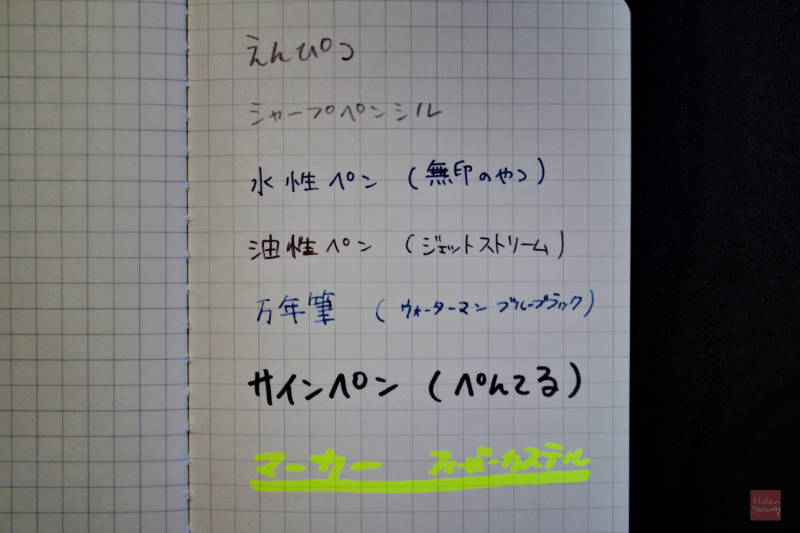 えんぴつ
シャープペンシル
水性ペン (無印のやつ)
油性ペン (ジェットストリーム)
万年筆 (ウォーターマン ブルーブラック)
サインペン (ぺんてる)
マーカー ファーバーカステル
Helen